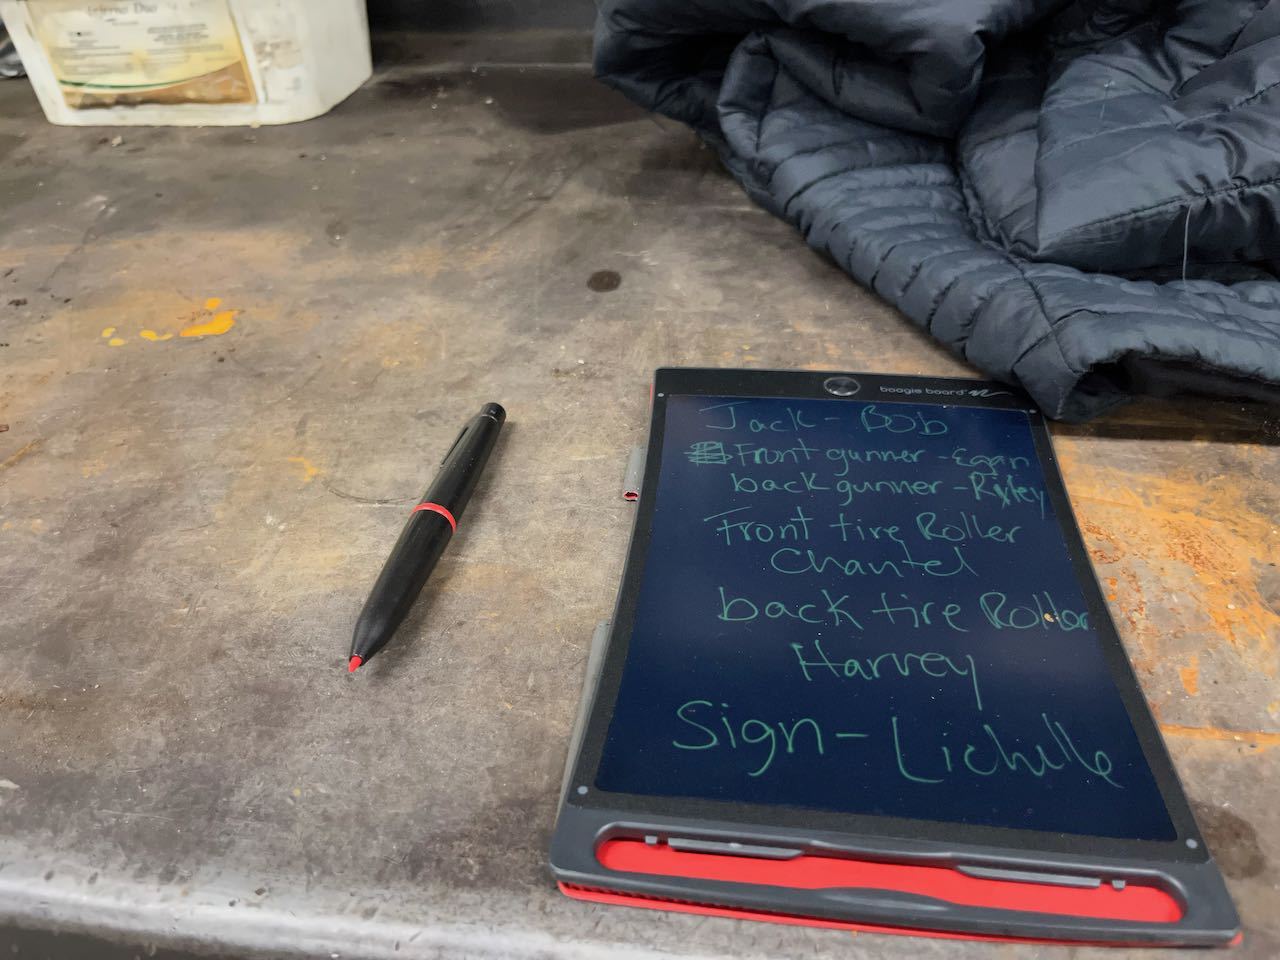 boogie board
Jack - Bob
Front gunner - Egan
back gunner - Rixley
Front tire Roller
Chantel
back tire Roller
Harvey
Sign - Lichelle